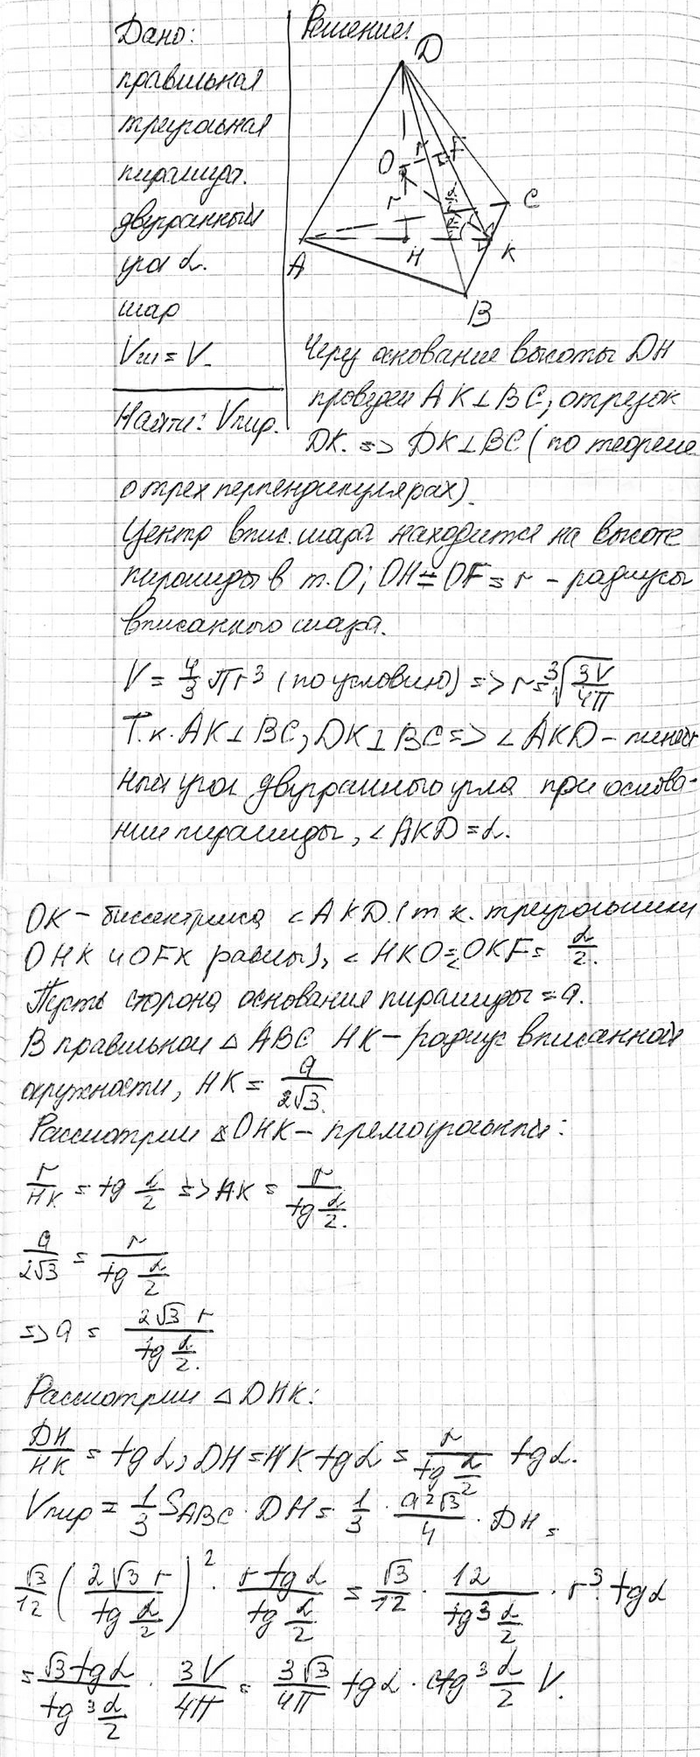 Дано:
правильная
треугольная
пирамида.
двугранный
угол α.
шар
Vш = V.
Найти: Vпир.
Решение:
D
O r F
r
A H K C
B
Через основание высоты DH
проведем AK⊥BC, отрезок
DK. => DK⊥BC (по теореме
о трех перпендикулярах).
Центр впис. шара находится на высоте
пирамиды в т. O; OH = OF = r - радиусы
вписанного шара.
V = 4/3 πr³ (по условию) => r = ∛(3V/4π)
Т.к. AK⊥BC, DK⊥BC => ∠AKD - линей
ный угол двугранного угла при основа-
нии пирамиды, ∠AKD = α.
OK - биссектриса ∠AKD (т.к. треугольники
OHK и OFK равны), ∠HKO = OKF = α/2.
Пусть сторона основания пирамиды = a.
В правильном △ABC HK - радиус вписанной
окружности, HK = a/2√3.
Рассмотрим △OHK - прямоугольный:
r/HK = tg α/2 => AK = r/tg α/2.
a/2√3 = r/tg α/2
=> a = 2√3 r/tg α/2.
Рассмотрим △DHK:
DH/HK = tg α, DH = HK tg α = r/tg α/2 tg α.
Vпир = 1/3 S_ABC · DH = 1/3 · a²√3/4 · DH =
√3/12 (2√3 r/tg α/2)² · r tg α/tg α/2 = √3/12 · 12/tg³ α/2 · r³ · tg α
= √3 tg α/tg³ α/2 · 3V/4π = 3√3/4π tg α · ctg³ α/2 V.